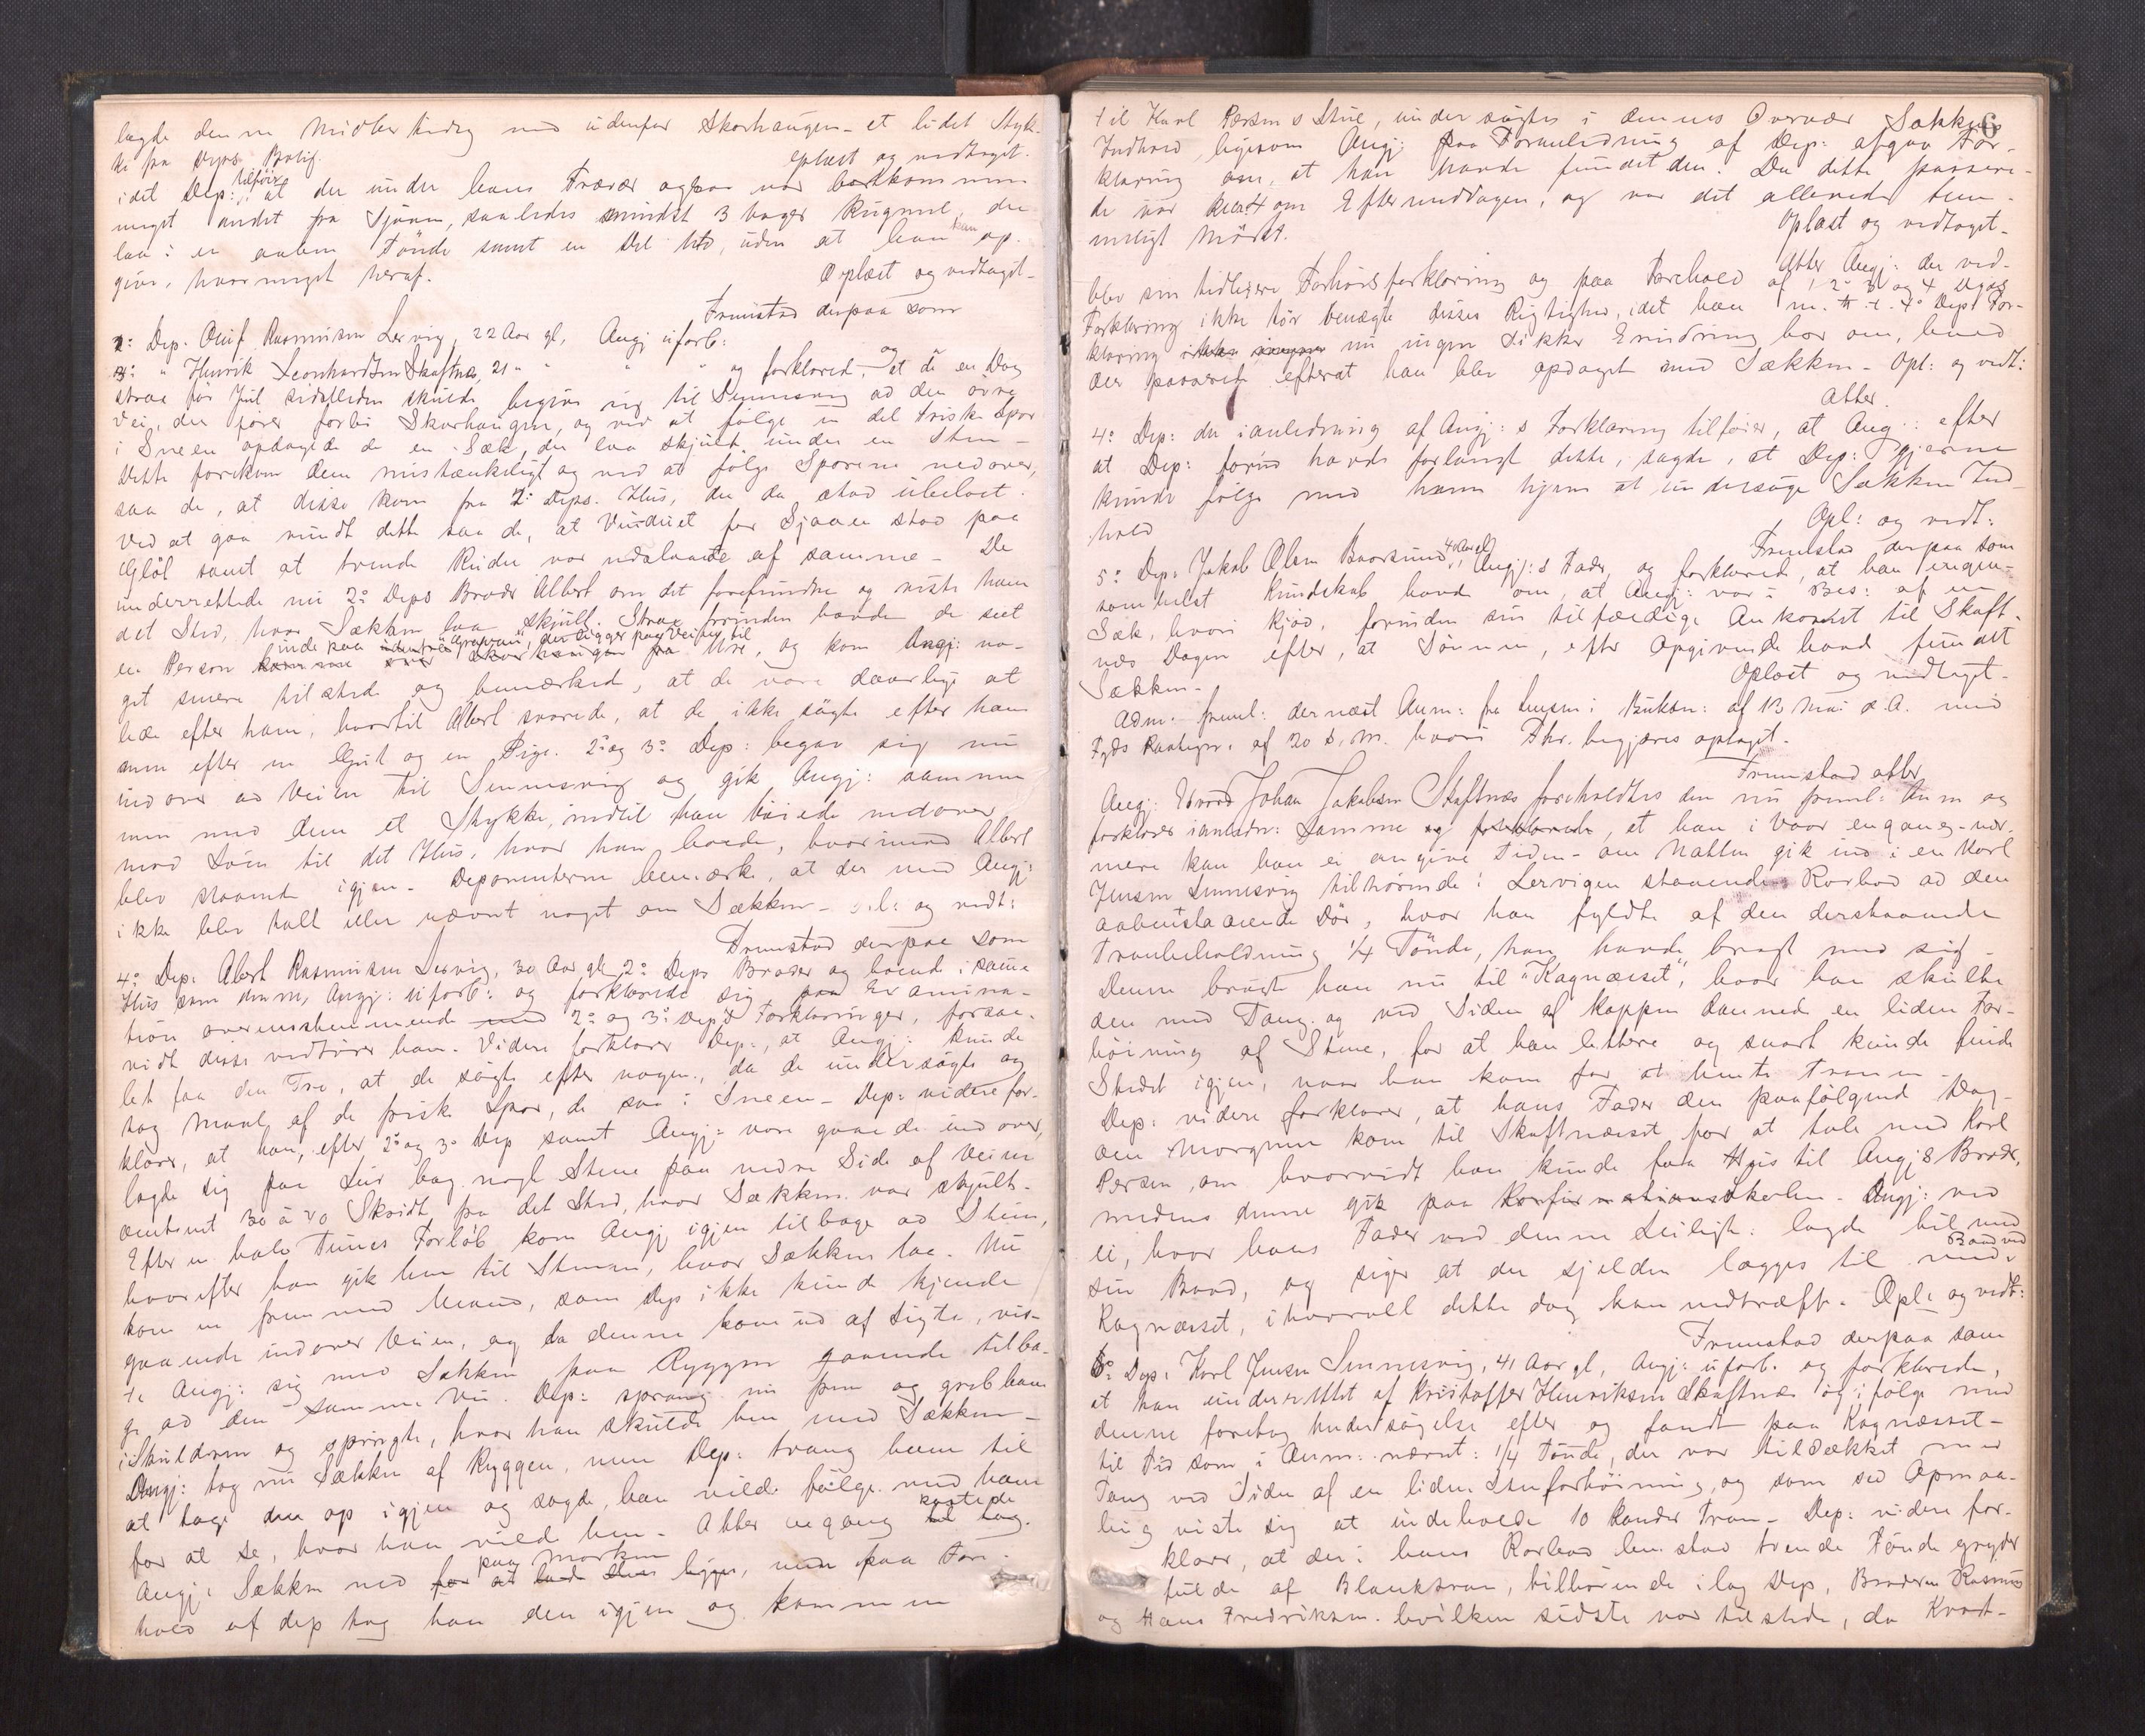 lagde denne midlertidig ned udenfor Skarhaugen - et lidet Styk-
ke fra Deps Bolig.
oplæst og vedtaget.
idet Dep: tilføir at der under hans Fravær ogsaa var bortkommen
meget andet fra Sjåen, saaledes mindst 3 Voger Rugmel, der
laa i en aaben Tønde samt en Del Uld, uden at han kan op-
give, hvormeget heraf.
Oplæst og vedtaget -
Fremstod derpaa som
2: Dep. Oluf Rasmussen Lervig, 22 Aar gl, Angj uforb:
3: " Henrik Leonhardsen Skaftnæs, 21 " " " " og forklared, og at de en Dag
strax før Jul sidstleden skulde begive sig til Sennesvig ad den øvre
Vei, der fører forbi Skarhaugen, og ved at følge en del friske Spor
i Sneen opdagede de en Sæk, der laa skjult under en Sten -
Dette forekom dem mistænkeligt og ved at følge Sporene nedover,
saa de, at disse kom fra 1: Deps. Hus, der da stod ubeboet.
Ved at gaa rundt dette saa de, at Vinduet for Sjaaen stod paa
Gløt samt at tvende Ruder var udslaaede af samme - De
underrettede nu 2: Deps Broder Albert om det forefundne og viste ham
det Sted, hvor Sækken laa skjult. Strax forinden havde de seet
inde paa "Grøpan", der ligger paa Veien til
en Person Ure, og kom Angj: no-
get senere tilstede og bemærked, at de vare daarlige at
lede efter ham, hvortil Albert svarede, at de ikke søgte efter ham
men efter en Gut og en Pige. 2: og 3: Dep: begav sig nu
indover ad Veien til Sennesvig og gik Angj: sammen
men med dem et Stykke, indtil han bøiede nedover
mod Søen til det Hus, hvor han boede, hvorimod Albert
blev staaende igjen - Deponenterne bemærke, at der med Angj:
ikke blev talt eller nævnt noget om Sækken - Opl: og vedt:
Fremstod derpaa som
4: Dep. Albert Rasmussen Lervig, 30 Aar gl, 2: Deps Broder og boende i samme
Hus som denne, Angj: uforb: og forklarede sig paa Examina-
tion overensstemmende med 2: og 3: Dep's Forklaringer, forsaa-
vidt disse vedrører ham. Videre forklarer Dep:, at Angj: kunde
let faa den Tro, at de søgte efter nogen, da de undersøgte og
tog Maal af de friske Spor, de saa i Sneen - Dep: videre for-
klarer, at han, efter 2: og 3: Dep samt Angj: vare gaaede indover,
lagde sig paa Lur bag nogle Stene paa nedre Side af Veien
omtrent 30 à 40 Skridt fra det Sted, hvor Sækken var skjult -
Efter en halv Times Forløb kom Angj igjen tilbage ad Stien,
hvorefter han gik hen til Stenen, hvor Sækken laa. Nu
kom en fremmed Mand, som Dep ikke kunde kjende
gaaende indover Veien, og da denne kom ud af Sigte, vis-
te Angj: sig med Sækken paa Ryggen gaaende tilba-
ge ad den samme Vei. Dep: sprang nu frem og greb ham
i Skuldren og spurgte, hvor han skulde hen med Sækken -
Angj: tog nu Sækken af Ryggen, men Dep: tvang ham til
at tage den op igjen og sagde, han vilde følge med ham
for at se, hvor han vilde hen - Atter engang kastede
Angj: Sækken ned paa Marken, men paa For-
hold af Dep tog han den igjen og kommen
6
til Karl Persens Stue, undersøgtes i dennes Overvær Sækkens
Indhold, ligesom Angj: paa Foranledning af Dep: afgav For-
klaring om, at han havde fundet den. Da dette passere-
de var Kl. 4 om Eftermiddagen, og var det allerede tem-
meligt mørkt.
Oplæst og vedtaget -
Atter Angj: der ved-
blev sin tidligere Forhørsforklaring og paa Forehold af 1, 2: 3: og 4 Deps
Forklaring ikke tør benægte disses Rigtighed, idet han m. H. t. 4: Deps For-
klaring nu ingen sikker Erindring har om, hvad
der passerede efterat han blev opdaget med Sækken - Opl: og vedt:
Atter
4: Dep: der i anledning af Angj:s Forklaring tilføier, at Angj: efter
at Dep: forud havde forlangt dette, sagde, at Dep: gjerne
kunde følge med ham hjem at undersøge Sækken Ind-
hold
Opl: og vedt:
Fremstod derpaa som
5: Dep: Jakob Olsen Baarsund, Angj:s Fader, og forklarede, at han ingen-
somhelst Kundskab havde om, at Angj: var i Bes: af en
Sæk, hvori Kjød, forinden sin tilfældige Ankomst til Skaft-
næs Dagen efter, at Sønnen, efter Opgivende havde fundet
Sækken -
Oplæst og vedtaget -
Adm. freml: dernæst Anm: fra Lensm: i Buksn: af 13 Mai d.A. med
Fgds Paategn. af 20 s.M. hvori Fhr. begjæres optaget -
Fremstod atter
Angj: Edvard Johan Jakobsen Skaftnæs foreholdtes den nu freml: Anm og
forklarer i anledn: Samme, at han i Vaar engang - nær-
mere kan han ei angive Tiden - om Natten gik ind i en Karl
Jensen Sennesvig tilhørende i Lervigen staaende Rorbod ad den
aabenstaaende Dør, hvor han fyldte af den derstaaende
Tranbeholdning 1/4 Tønde, han havde bragt med sig -
Denne bragte han nu til "Kagnæset", hvor han skulte
den med Tang og ved Siden af Kaggen dannede en liden For-
høining af Stene, for at han lettere og snart kunde finde
Stedet igjen, naar han kom for at hente Tranen -
Dep: videre forklarer, at hans Fader den paafølgende Dag
om Morgenen kom til Skaftnæset for at tale med Karl
Persen, om hvorvidt han kunde faa Hus til Angj:s Broder,
medens denne gik paa Konfirmationsskolen - Angj: ved
ei, hvor hans Fader ved denne Leiligh: lagde til med
sin Baad, og siger at der sjelden lægges til med Baad ved
Kagnæsset, ihvorvel dette dog kan indtræffe. Opl: og vedt:
Fremstod derpaa som
6: Dep: Karl Jensen Sennesvig, 41 Aar gl, Angj: uforb. og forklarede,
at han underrettet af Kristoffer Henriksen Skaftnæs og i følge med
denne foretog Undersøgelse efter og fandt paa Kagnæsset -
til Tid som i Anm: nævnt: 1/4 Tønde, der var tildækket med
Tang ved Siden af en liden Stenforhøining, og som ved Opmaa-
ling viste sig at indeholde 10 Kander Tran - Dep: videre for-
klarer, at der i hans Rorbod henstod tvende Tønde gryder
fulde af Blanktran, tilhørende i lag Dep, Broderen Rasmus
og Hans Fredriksen. hvilken sidste var tilstede, da Kvart-